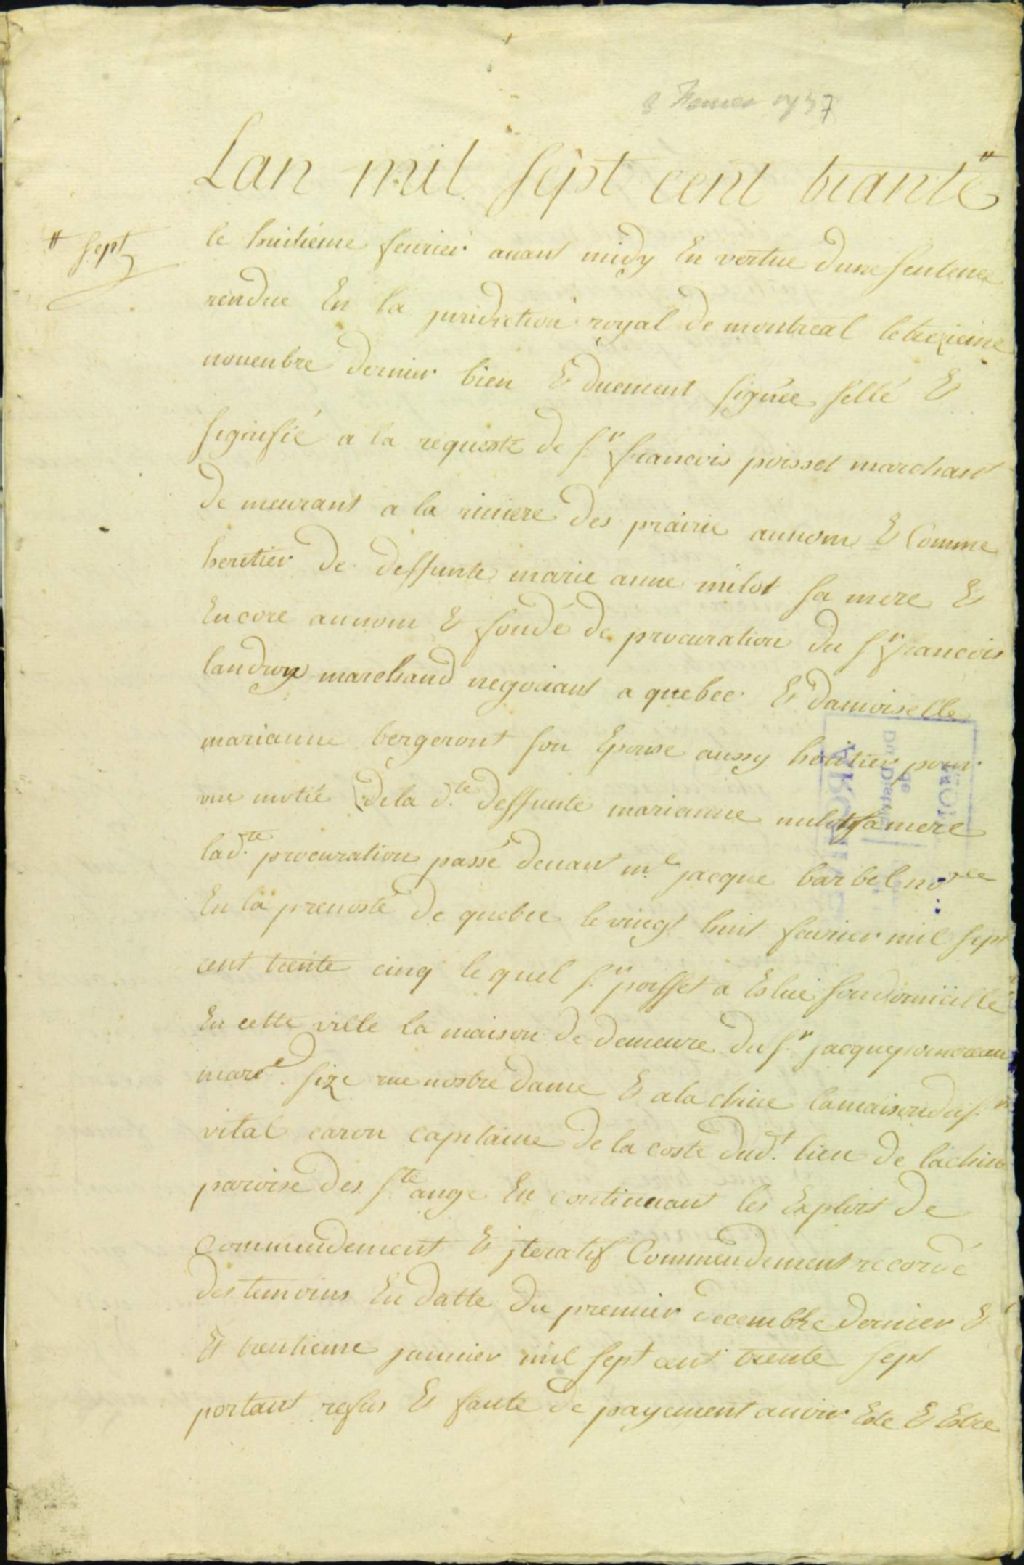 8 Fevrier 1737
Lan mil sept cent trante #
# sept
le huitieme feurier auant midy En vertue dune sentence
rendue En la juridiction royal de montreal le treizieme
nouenbre dernier bien & duement signée sellé &
signifié a la requeste de Sr. francois poisset marchant
de meurant a la riuiere des prairie aunom & Comme
heritier de deffunte marie anne milot sa mere &
Encore aunom & fondé de procuration du Sr. francois
landron marchand negociant a quebec & damoiselle
marianne bergeront son Epouse aussy heritier pour
une motié de la dte. deffunte marianne milot sa mere
lad.te procuration passé deuant me. jacque barbel nore
En la preuosté de quebec le vingt huit feurier mil sept
cent trente cinq le quel Sr. poisset a Eslue son domicille
En cette ville la maison de demeure du Sr. jacque
mard. size rue nostre dame & a la chine la maison du Sr.
vital caron capitaine de la coste dud.t lieu de lachine
paroise des Ste. ange En continuant les Exploit de
Commendement & jteratif Commendement recordé
des temoins En datte du premier decembre dernier &
& trentieme januier mil sept cent trente sept
portant refus & faute de payement auoir Este & Estre